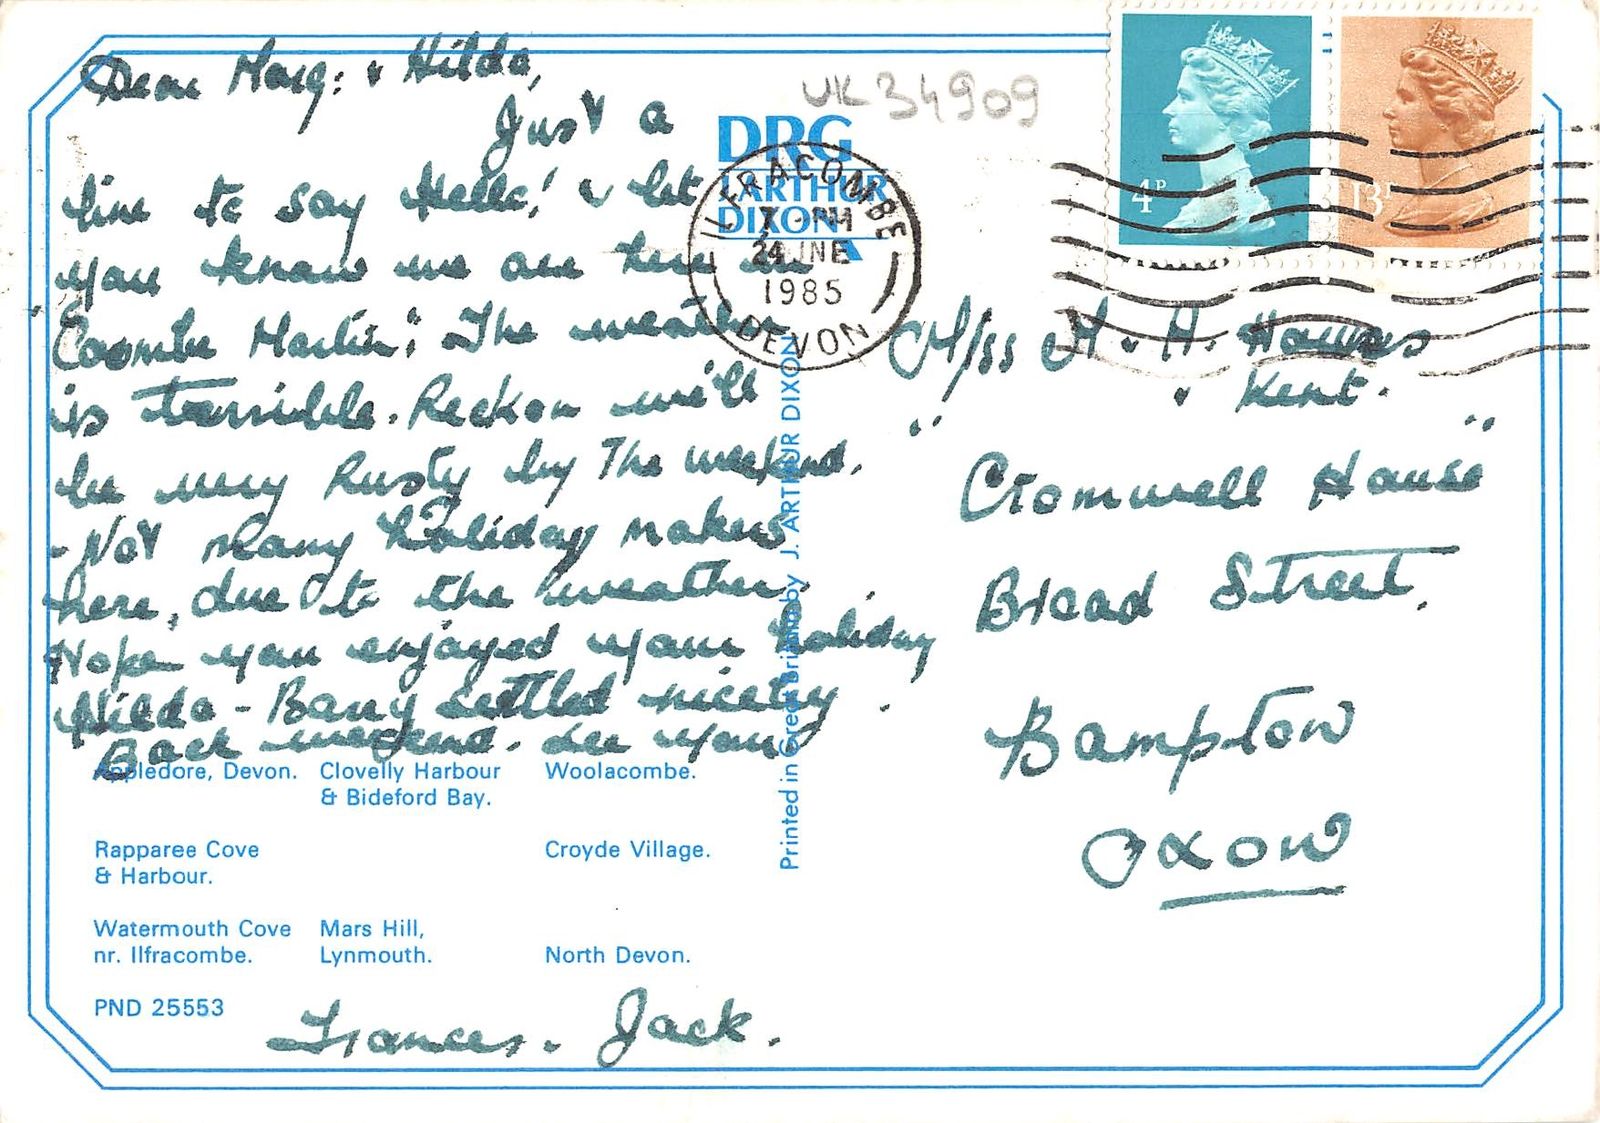 Dear Marg: & Hilda,
Just a
line to say Hello! & let
you know we are here in
"Coombe Martin". The weather
is terrible. Reckon we'll
be very Rusty by The weekend.
- Not many holiday makers
here, due to the weather.
Hope you enjoyed your holiday
Hilda - Barry settled nicely.
Back weekend. See you
Frances. Jack.
Appledore, Devon.
Clovelly Harbour
& Bideford Bay.
Woolacombe.
Rapparee Cove
& Harbour.
Croyde Village.
Watermouth Cove
nr. Ilfracombe.
Mars Hill,
Lynmouth.
North Devon.
PND 25553
UK34909
DRG
J. ARTHUR
DIXON
Printed in Great Britain by J. ARTHUR DIXON
ILFRACOMBE
24 JNE
1985
DEVON
4P
13P
Miss M & H.
& Kent.
"Cromwell House"
Broad Street.
Bampton
OXON